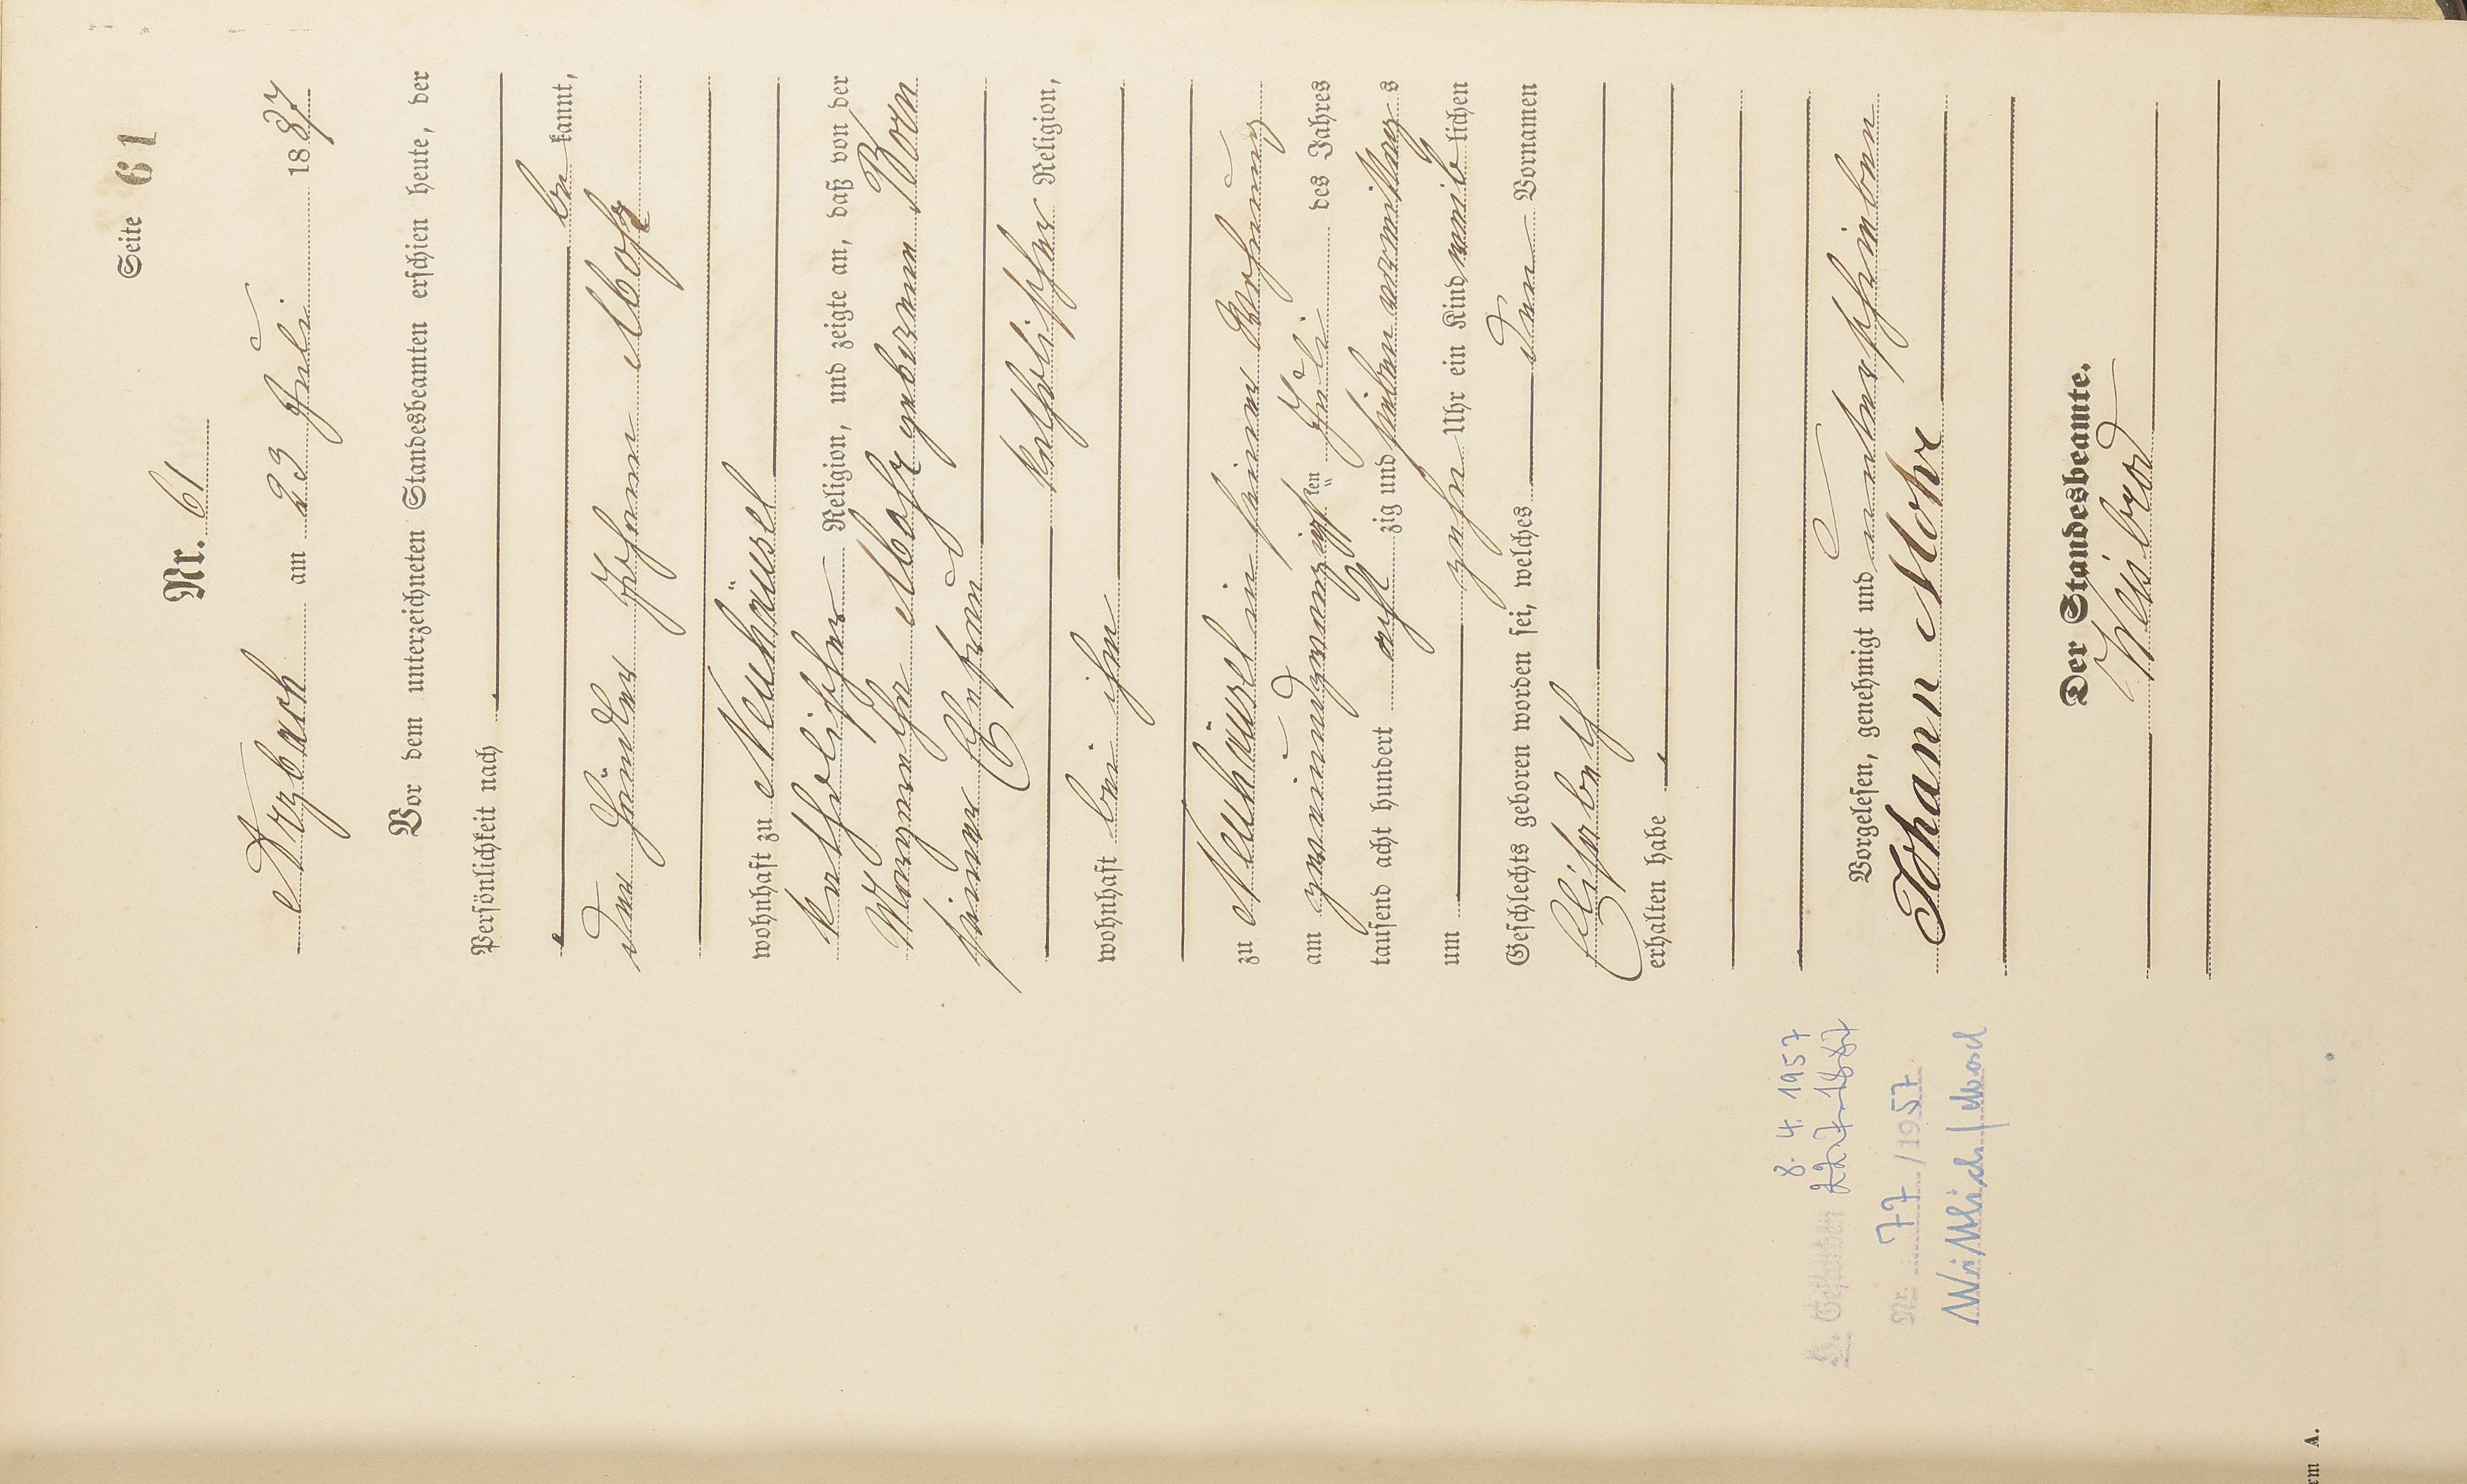 Seite 61
Nr. 61
Arzbach am 23 Juli 1887
Vor dem unterzeichneten Standesbeamten erschien heute, der
Persönlichkeit nach
be kannt,
der Händler Johann Mohr
wohnhaft zu Neuhäusel
katholischer Religion, und zeigte an, daß von der
Margarethe Mohr geborenen Born
seiner Ehefrau
katholischer Religion,
wohnhaft bei ihm
zu Neuhäusel in seiner Wohnung
am zweiundzwanzigsten Juli des Jahres
tausend acht hundert acht zig und sieben vormittags
um zehn Uhr ein Kind weiblichen
Geschlechts geboren worden sei, welches den Vornamen
Elisabeth
erhalten habe
Vorgelesen, genehmigt und unterschrieben
Johann Mohr
Der Standesbeamte.
8. 4. 1957
Gestorben 22.7.1887
Nr. 77 /1957
Wittlich/Mosel
A.